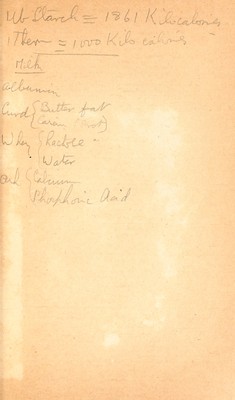 1 lb Starch = 1861 Kilocalories
1 Therm = 1000 Kilo calories
Milk
Albumin
Curd { Butter fat
{ Casein
Whey { Lactose
Water
{ Calcium
Phosphoric Acid